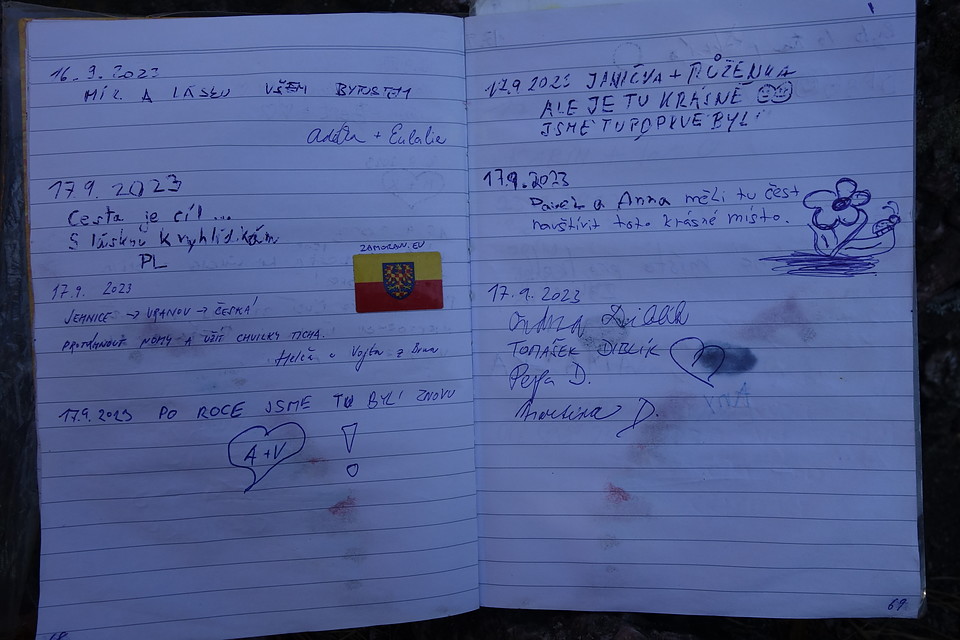 16. 9. 2023
MÍR A LÁSKU VŠEM BYTOSTEM
Adéla + Eulalie
17.9. 2023
Cesta je cíl...
S láskou k vyhlídkám
PL
ZAMORAVU.EU
17.9. 2023
JEHNICE → VRANOV → ČESKÁ!
PROTÁHNOUT NOHY A UŽÍT CHVILKY TICHA.
Helča a Vojta z Brna
17.9. 2023 PO ROCE JSME TU BYLI ZNOVU
A+V !
17.9 2023 JANIČKA + RŮŽENKA
ALE JE TU KRÁSNĚ
JSME TU POPRVÉ BYLI
17.9.2023
Pavel a Anna měli tu čest
navštívit toto krásné místo.
17.9.2023
Ondra Diblík
TOMÁŠEK DIBLÍK
Pepa D.
Martina D.
69